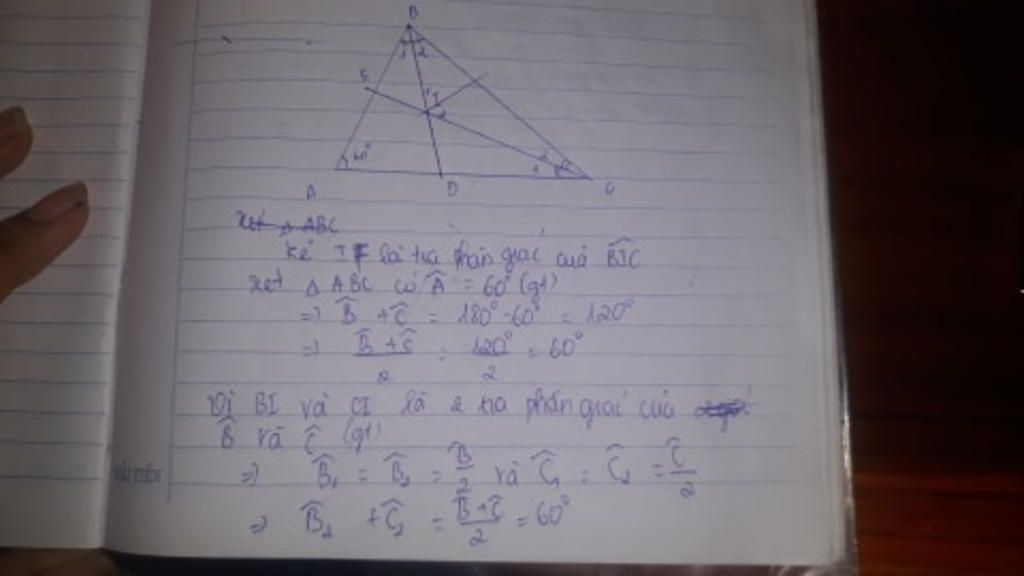 B
1 2
E
I
60°
A
D
C
xét △ ABC
Kẻ IF là tia phân giác của BIC
xét △ ABC có Â = 60° (gt)
=> B̂ + Ĉ = 180° - 60° = 120°
=> (B̂ + Ĉ)/2 = 120°/2 = 60°
Vì BI và CI là 2 tia phân giác của
B̂ và Ĉ (gt)
=> B̂₁ = B̂₂ = B̂/2 và Ĉ₁ = Ĉ₂ = Ĉ/2
=> B̂₂ + Ĉ₂ = (B̂ + Ĉ)/2 = 60°